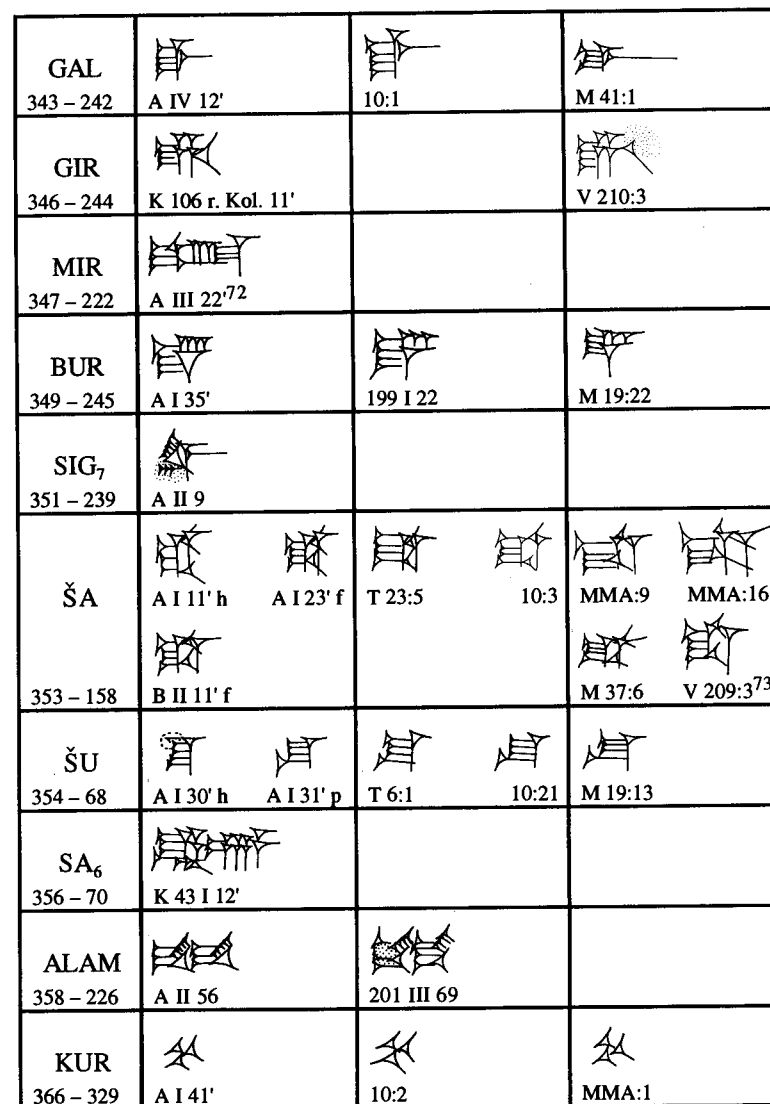 GAL
343 – 242 A IV 12' 10:1 M 41:1
GIR
346 – 244 K 106 r. Kol. 11' V 210:3
MIR
347 – 222 A III 22'72
BUR
349 – 245 A I 35' 199 I 22 M 19:22
SIG₇
351 – 239 A II 9
ŠA A I 11' h A I 23' f T 23:5 10:3 MMA:9 MMA:16
353 – 158 B II 11' f M 37:6 V 209:373
ŠU
354 – 68 A I 30' h A I 31' p T 6:1 10:21 M 19:13
SA₆
356 – 70 K 43 I 12'
ALAM
358 – 226 A II 56 201 III 69
KUR
366 – 329 A I 41' 10:2 MMA:1